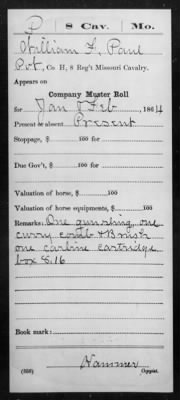 P 8 Cav. Mo.
William F. Paul
Pvt, Co. H, 8 Reg't Missouri Cavalry.
Appears on
Company Muster Roll
for Jan & Feb, 1864
Present or absent Present
Stoppage, $ 100 for
Due Gov't, $ 100 for
Valuation of horse, $ 100
Valuation of horse equipments, $ 100
Remarks: One gun sling one
curry comb & Brush
one carbine cartridge
box 8.16
Book mark:
Hammer
(358) Copyist.